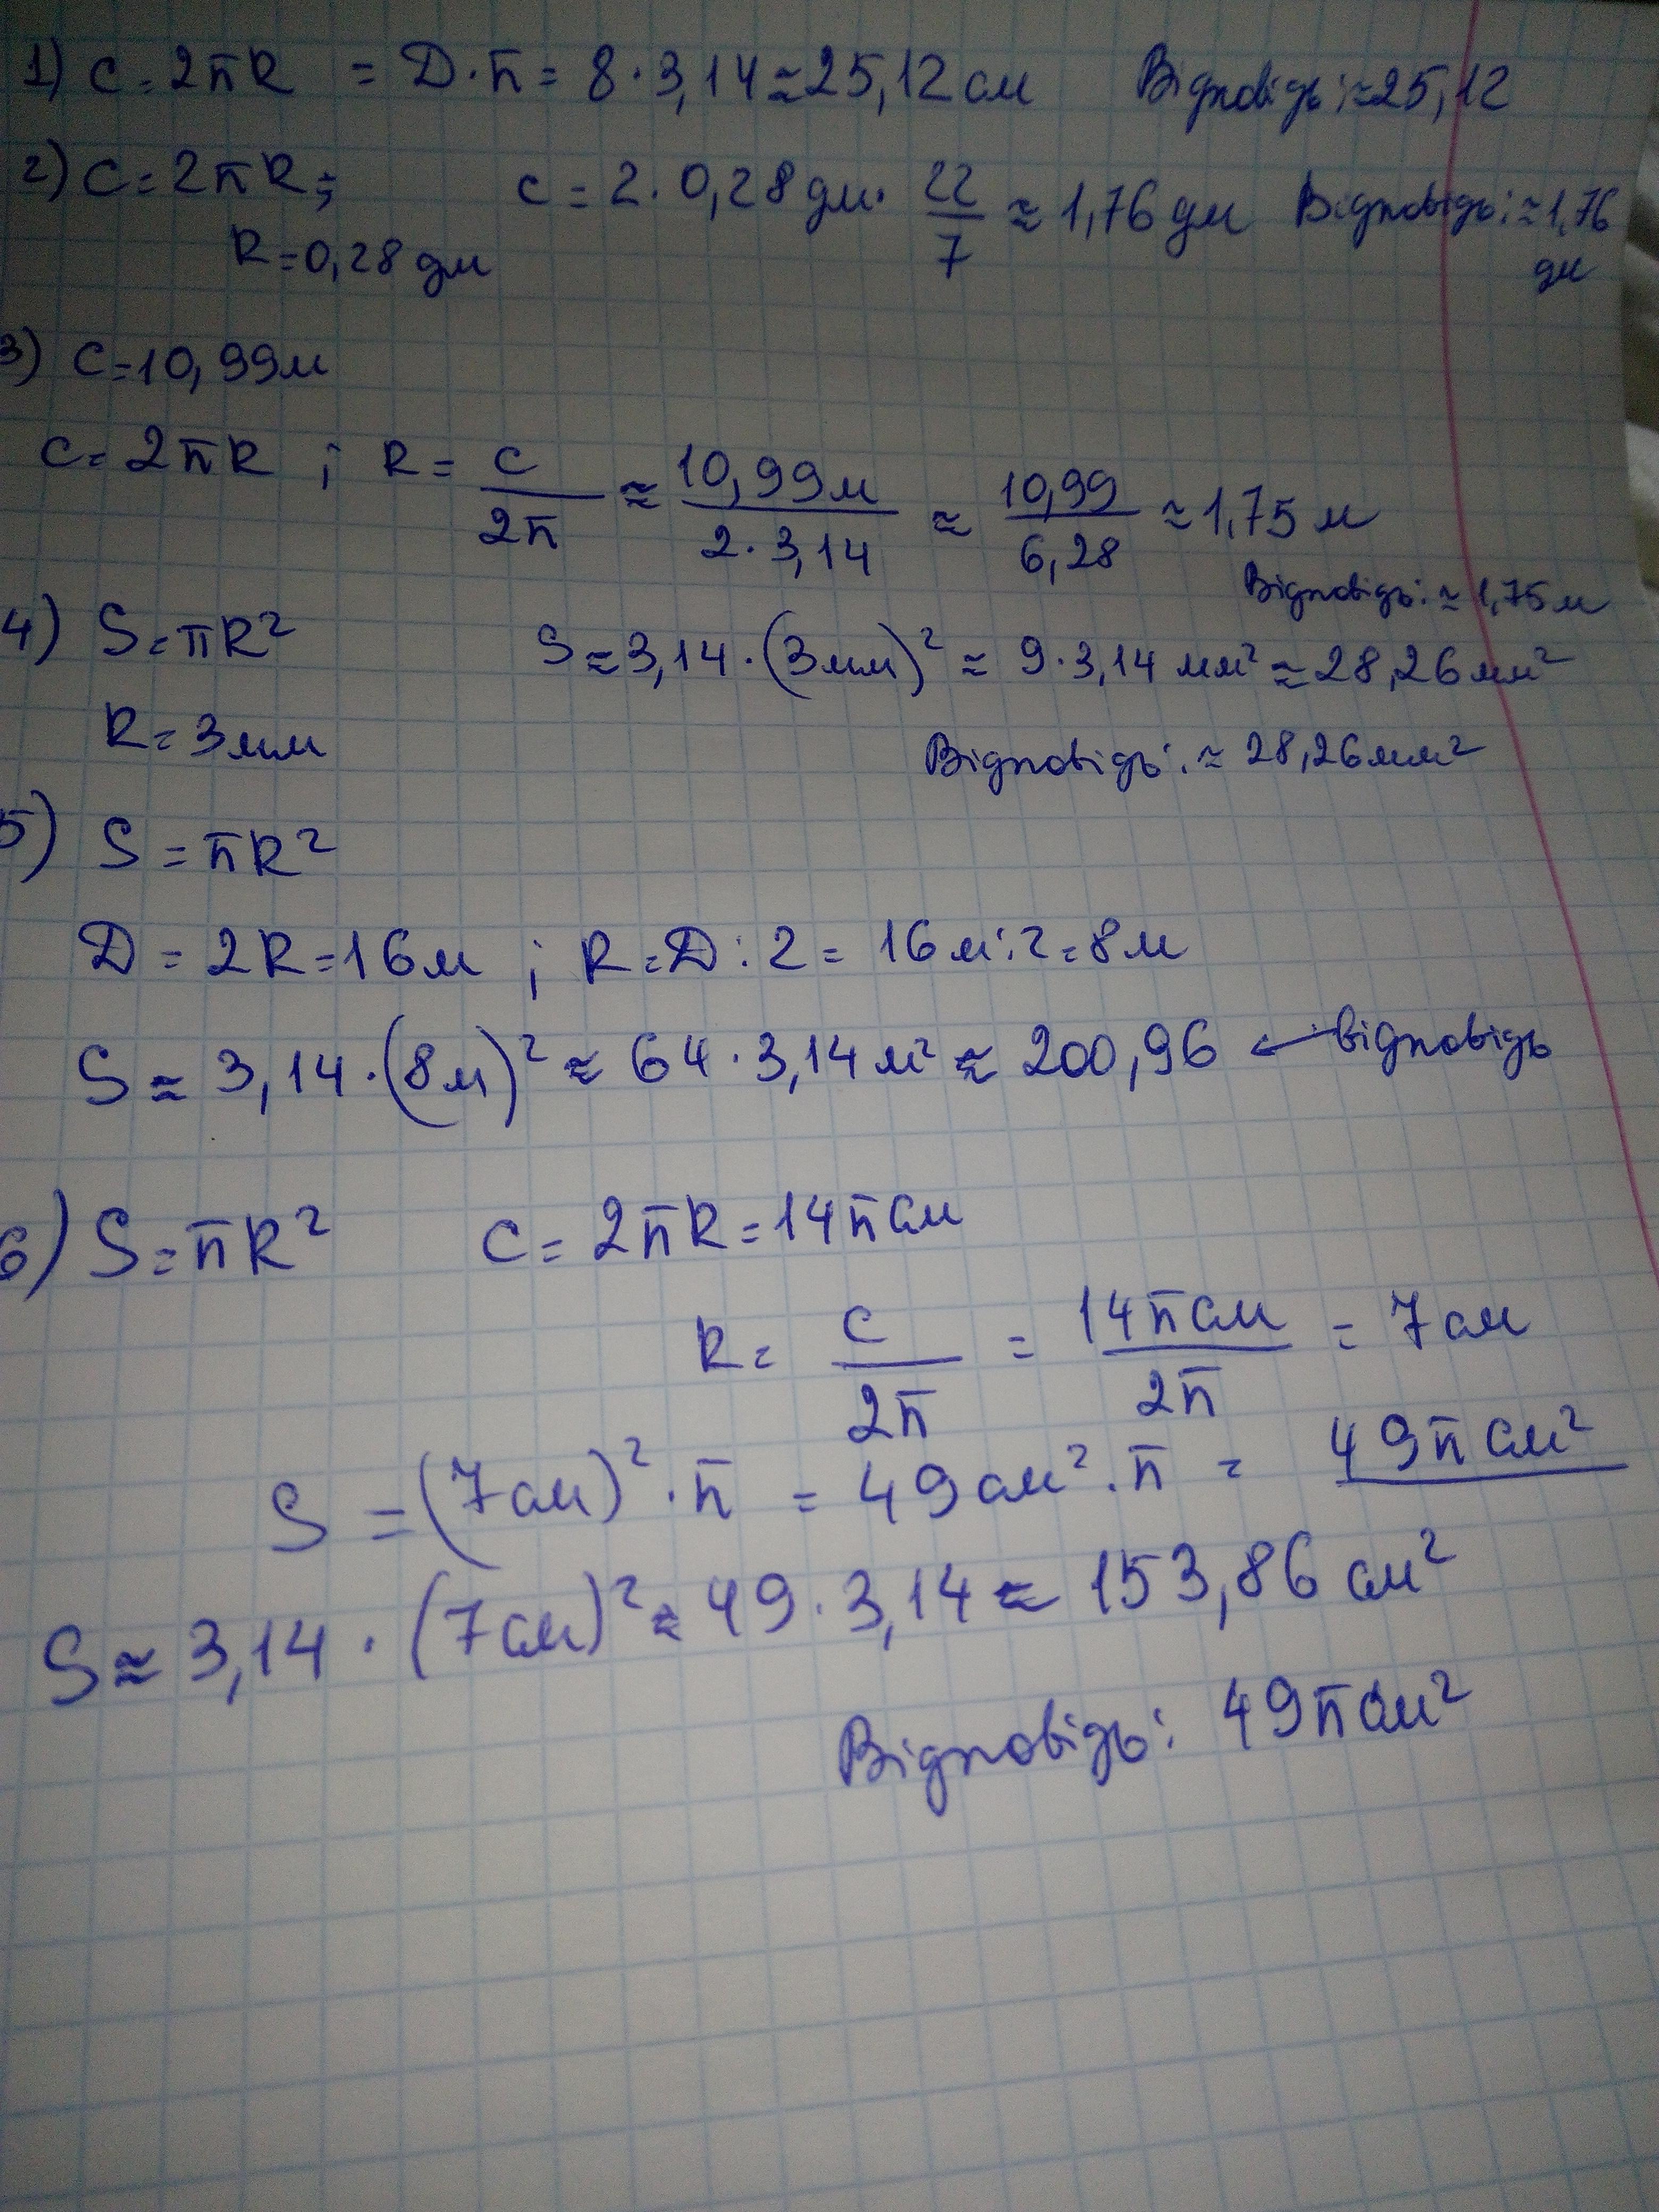 1) C = 2πR = D · π = 8 · 3,14 ≈ 25,12 см Відповідь: ≈25,12
2) C = 2πR; C = 2 · 0,28 дм · 22/7 ≈ 1,76 дм Відповідь: ≈1,76
R = 0,28 дм дм
3) C = 10,99м
C = 2πR ; R = C/2π ≈ 10,99м/2 · 3,14 ≈ 10,99/6,28 ≈ 1,75 м
Відповідь: ≈ 1,75 м
4) S = πR² S ≈ 3,14 · (3мм)² ≈ 9 · 3,14 мм² ≈ 28,26 мм²
R = 3мм Відповідь: ≈ 28,26мм²
5) S = πR²
D = 2R = 16м ; R = D : 2 = 16м : 2 = 8м
S ≈ 3,14 · (8м)² ≈ 64 · 3,14 м² ≈ 200,96 ← відповідь
6) S = πR² C = 2πR = 14π см
R = C/2π = 14π см/2π = 7 см
S = (7см)² · π = 49 см² · π = 49π см²
S ≈ 3,14 · (7см)² ≈ 49 · 3,14 ≈ 153,86 см²
Відповідь: 49π см²